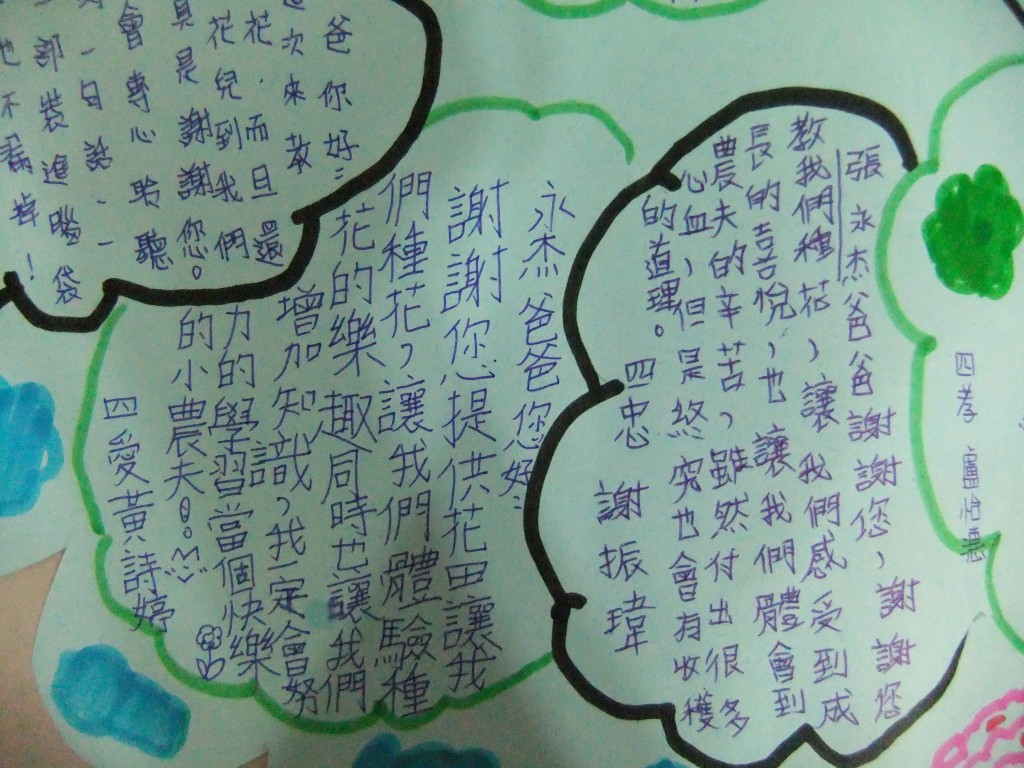 四孝 盧怡
張永杰爸爸謝謝您、謝謝您
教我們種花、讓我們感受到成
長的喜悅、也讓我們體會到
農夫的辛苦、雖然付出很多
心血、但是終究也會有收穫
的道理。
四忠 謝振瑋
永杰爸爸您好：
謝謝您提供花田讓我
們種花、讓我們體驗種
花的樂趣同時也讓我們
增加知識、我一定會努
力的學習當個快樂
的小農夫!
四愛黃詩婷
爸你好：
次來教
花，而且還
花兒到我們
是謝謝您。
會專心聆聽
一日
部裝進腦袋
也不漏掉！